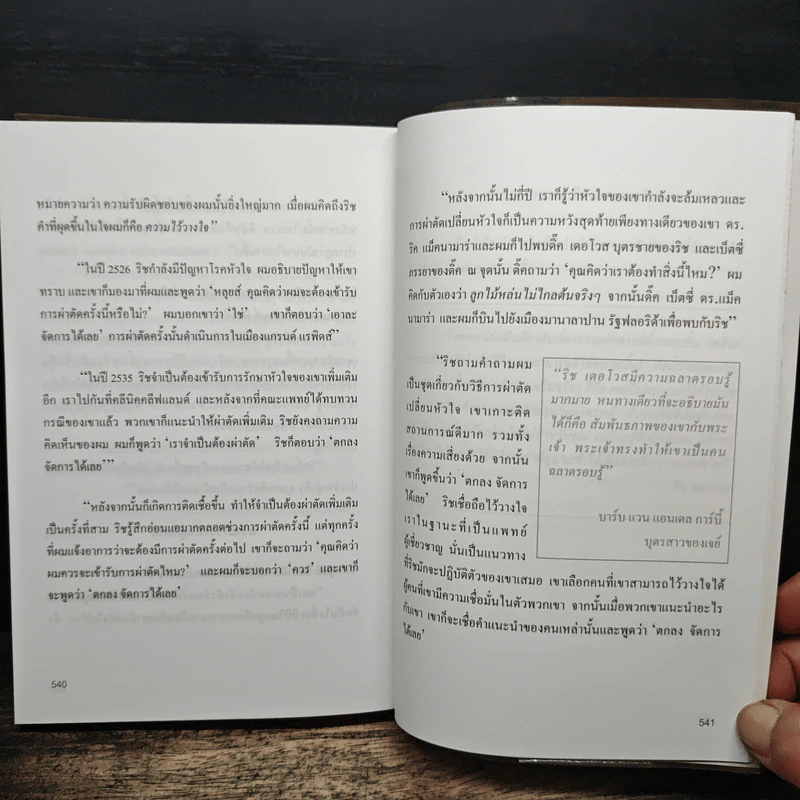 หมายความว่า ความรับผิดชอบของผมนั้นยิ่งใหญ่มาก เมื่อผมคิดถึงริช
คำที่ผุดขึ้นในใจผมก็คือ ความไว้วางใจ”
“ในปี 2526 ริชกำลังมีปัญหาโรคหัวใจ ผมอธิบายปัญหาให้เขา
ทราบ และเขาก็มองมาที่ผมและพูดว่า ‘หลุยส์ คุณคิดว่าผมจะต้องเข้ารับ
การผ่าตัดครั้งนี้หรือไม่?’ ผมบอกเขาว่า ‘ใช่’ เขาก็ตอบว่า ‘เอาละ
จัดการได้เลย’ การผ่าตัดครั้งนั้นดำเนินการในเมืองแกรนด์ แรพิดส์”
“ในปี 2535 ริชจำเป็นต้องเข้ารับการรักษาหัวใจของเขาเพิ่มเติม
อีก เราไปกันที่คลีนิคคลีฟแลนด์ และหลังจากที่คณะแพทย์ได้ทบทวน
กรณีของเขาแล้ว พวกเขาก็แนะนำให้ผ่าตัดเพิ่มเติม ริชยังคงถามความ
คิดเห็นของผม ผมก็พูดว่า ‘เราจำเป็นต้องผ่าตัด’ ริชก็ตอบว่า ‘ตกลง
จัดการได้เลย’”
“หลังจากนั้นก็เกิดการติดเชื้อขึ้น ทำให้จำเป็นต้องผ่าตัดเพิ่มเติม
เป็นครั้งที่สาม ริชรู้สึกอ่อนแอมากตลอดช่วงการผ่าตัดครั้งนี้ แต่ทุกครั้ง
ที่ผมแจ้งอาการว่าจะต้องมีการผ่าตัดครั้งต่อไป เขาก็จะถามว่า ‘คุณคิดว่า
ผมควรจะเข้ารับการผ่าตัดไหม?’ และผมก็จะบอกว่า ‘ควร’ และเขาก็
จะพูดว่า ‘ตกลง จัดการได้เลย’
540
“หลังจากนั้นไม่กี่ปี เราก็รู้ว่าหัวใจของเขากำลังจะล้มเหลวและ
การผ่าตัดเปลี่ยนหัวใจก็เป็นความหวังสุดท้ายเพียงทางเดียวของเขา ดร.
ริค แม็คนามาร่าและผมก็ไปพบดิ๊ค เดอโวส บุตรชายของริช และเบ็ตซี่
ภรรยาของดิ๊ค ณ จุดนั้น ดิ๊คถามว่า ‘คุณคิดว่าเราต้องทำสิ่งนี้ไหม?’ ผม
คิดกับตัวเองว่า ลูกไม้หล่นไม่ไกลต้นจริงๆ จากนั้นดิ๊ค เบ็ตซี่ ดร.แม็ค
นามาร่า และผมก็บินไปยังเมืองมานาลาปาน รัฐฟลอริด้าเพื่อพบกับริช”
“ริชถามคำถามผม
เป็นชุดเกี่ยวกับวิธีการผ่าตัด
เปลี่ยนหัวใจ เขาเกาะติด
สถานการณ์ดีมาก รวมทั้ง
เรื่องความเสี่ยงด้วย จากนั้น
เขาก็พูดขึ้นว่า ‘ตกลง จัดการ
ได้เลย’ ริชเชื่อถือไว้วางใจ
เราในฐานะที่เป็นแพทย์
ผู้เชี่ยวชาญ นั่นเป็นแนวทาง
ที่ริชมักจะปฏิบัติตัวของเขาเสมอ เขาเลือกคนที่เขาสามารถไว้วางใจได้
ผู้คนที่เขามีความเชื่อมั่นในตัวพวกเขา จากนั้นเมื่อพวกเขาแนะนำอะไร
กับเขา เขาก็จะเชื่อคำแนะนำของคนเหล่านั้นและพูดว่า ‘ตกลง จัดการ
ได้เลย’
“ริช เดอโวสมีความฉลาดรอบรู้
มากมาย หนทางเดียวที่จะอธิบายมัน
ได้ก็คือ สัมพันธภาพของเขากับพระ
เจ้า พระเจ้าทรงทำให้เขาเป็นคน
ฉลาดรอบรู้”
บาร์บ แวน แอนเดล การ์บี้
บุตรสาวของเจย์
541